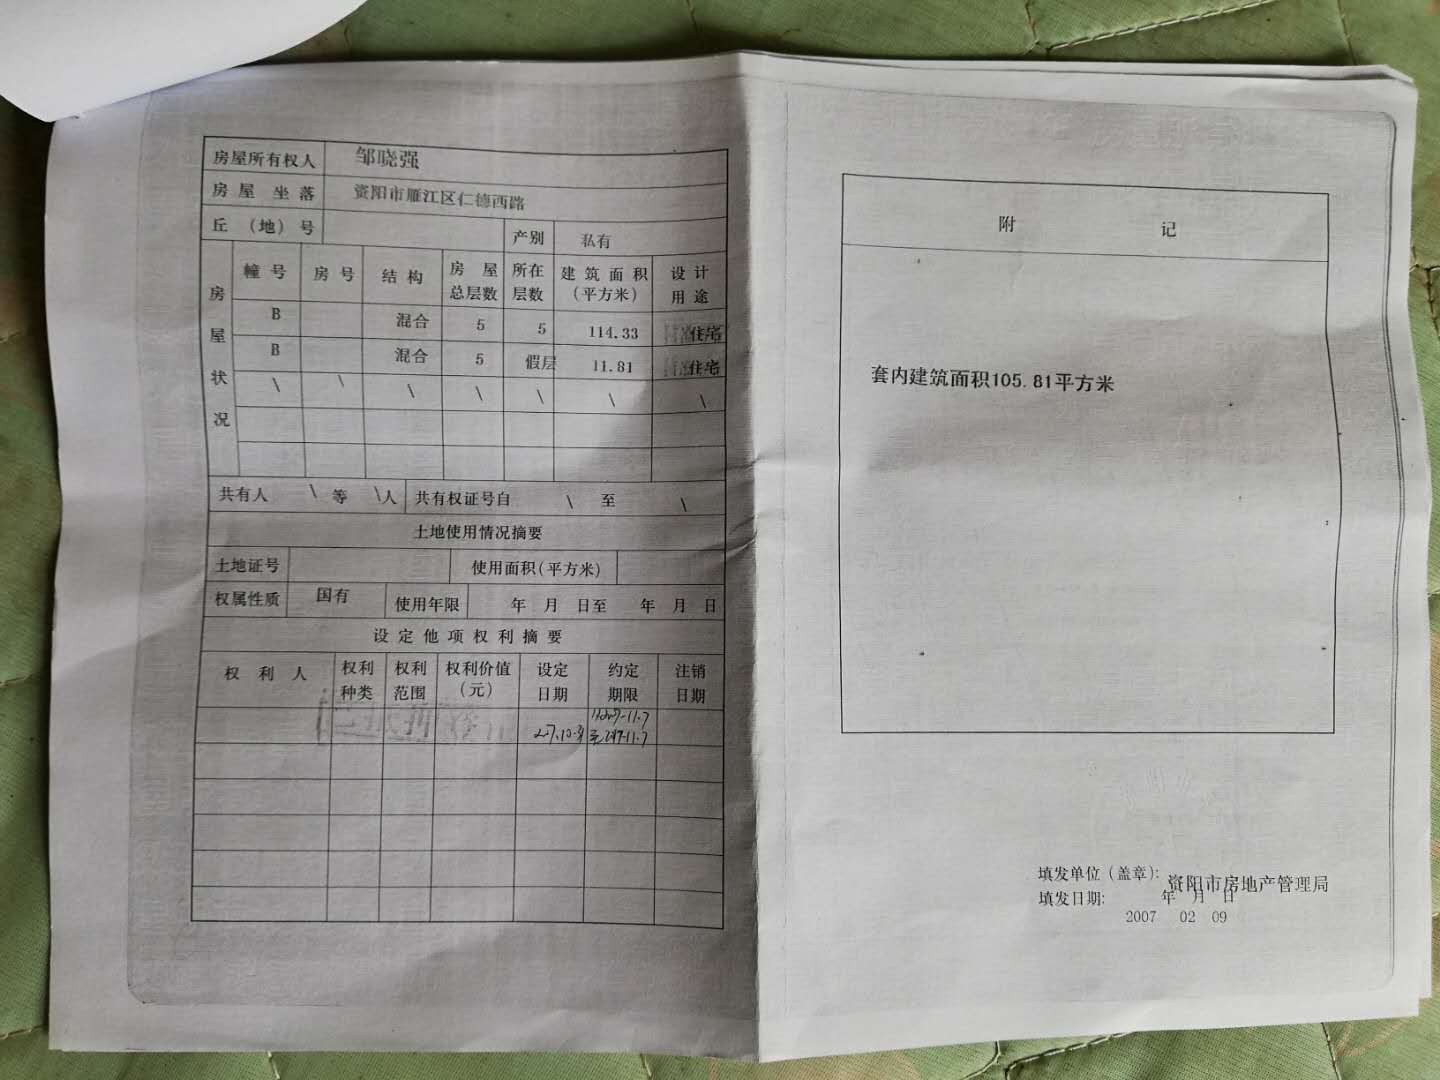 房屋所有权人 邹晓强
房屋坐落 资阳市雁江区仁德西路
丘（地）号 产别 私有
房屋状况
幢号 房号 结构 房屋总层数 所在层数 建筑面积（平方米） 设计用途
B 混合 5 5 114.33 住宅
B 混合 5 假层 11.81 住宅
\ \ \ \ \ \ \
共有人 \ 等 \人 共有权证号自 \ 至 \
土地使用情况摘要
土地证号 使用面积(平方米)
权属性质 国有 使用年限 年 月 日至 年 月 日
设定他项权利摘要
权利人 权利种类 权利范围 权利价值（元） 设定日期 约定期限 注销日期
附 记
套内建筑面积105.81平方米
填发单位（盖章）：资阳市房地产管理局
填发日期： 年 月 日
2007 02 09